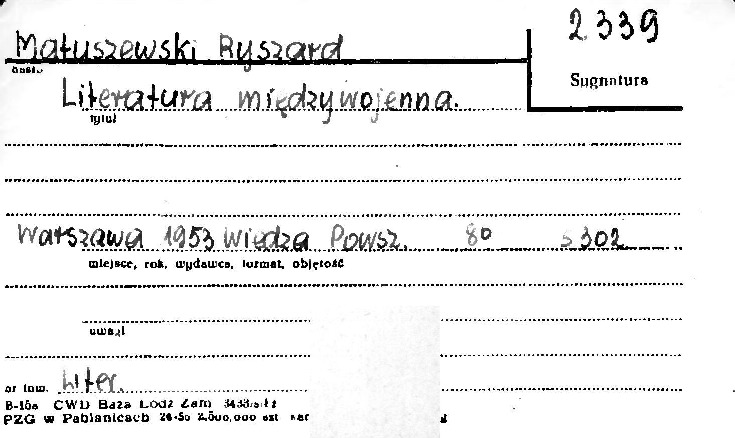 2339
Matuszewski Ryszard
hasło
Sygnatura
Literatura międzywojenna.
tytuł
Warszawa 1953 Wiedza Powsz. 8º s 302
miejsce, rok, wydawca, format, objętość
uwagi
nr inw. Liter.
B-15a CWD Baza Łódź Zam
PZG w Pabianicach 2.500.000 egz